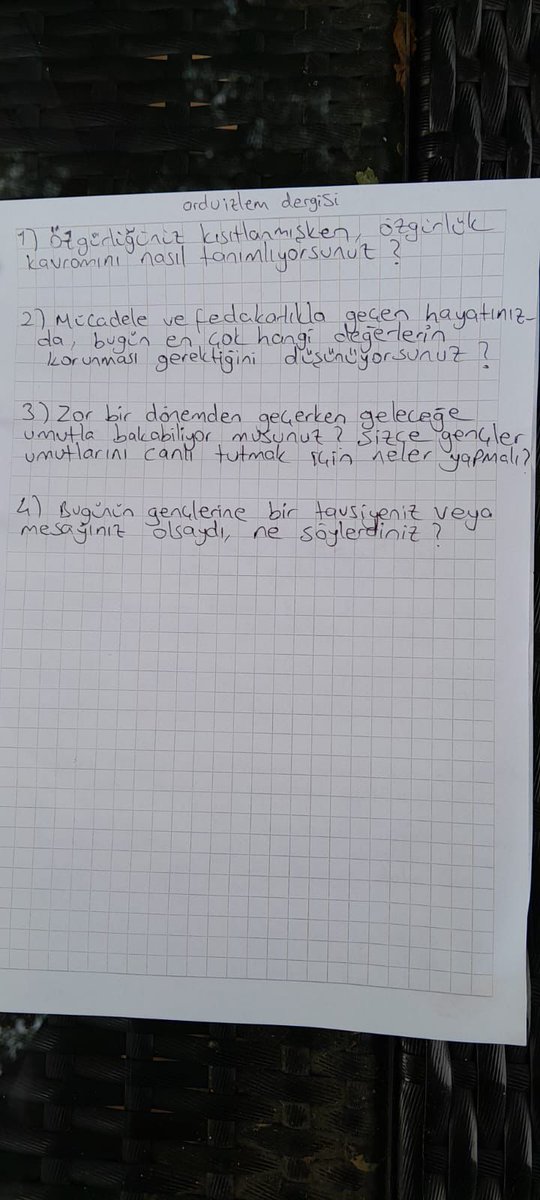 orduizlem dergisi
1) Özgürlüğünüz kısıtlanmışken, özgürlük
kavramını nasıl tanımlıyorsunuz?
2) Mücadele ve fedakarlıkla geçen hayatınız-
da, bugün en çok hangi değerlerin
korunması gerektiğini düşünüyorsunuz?
3) Zor bir dönemden geçerken geleceğe
umutla bakabiliyor musunuz? Sizce gençler
umutlarını canlı tutmak için neler yapmalı?
4) Bugünün gençlerine bir tavsiyeniz veya
mesajınız olsaydı, ne söylerdiniz?